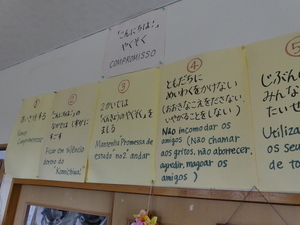 "こんにちは"の
やくそく
COMPROMISSO
①
あいさつをする
②
"こんにちは"の
なかでは しずかに
すごす
Ficar em silêncio
dentro do
"Konnichiwa"
③
2かいでは
「べんきょうのやくそく」を
まもろう
Mantenha Promessa de
estudo no 2° andar
④
ともだちに
めいわくをかけない
(おおきなこえをださない、
いやがることをしない)
Não incomodar os
amigos (Não chamar
aos gritos, não aborrecer,
agredir, magoar os
amigos)
⑤
じぶん
みんな
たいせ
Utiliza
os seu
de to